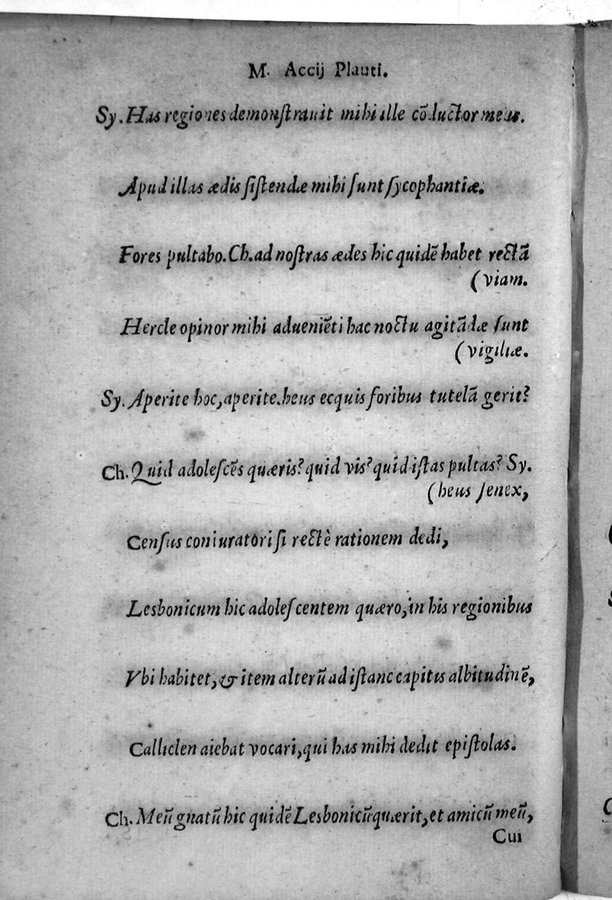 M. Accij Plauti.
Sy. Has regiones demonstrauit mihi ille cōductor meus.
Apud illas ædis sistendæ mihi sunt sycophantiæ.
Fores pultabo. Ch. ad nostras ædes hic quidē habet rectā
(viam.
Hercle opinor mihi adueniēti hac noctu agitādæ sunt
(vigiliæ.
Sy. Aperite hoc, aperite. heus ecquis foribus tutelā gerit?
Ch. Quid adolescēs quæris? quid vis? quid istas pultas? Sy.
(heus senex,
Census coniuratori si rectè rationem dedi,
Lesbonicum hic adolescentem quæro, in his regionibus
Vbi habitet, & item alterū ad istanc capitis albitudinē,
Calliclen aiebat vocari, qui has mihi dedit epistolas.
Ch. Meū gnatū hic quidē Lesbonicū quærit, et amicū meū,
Cui